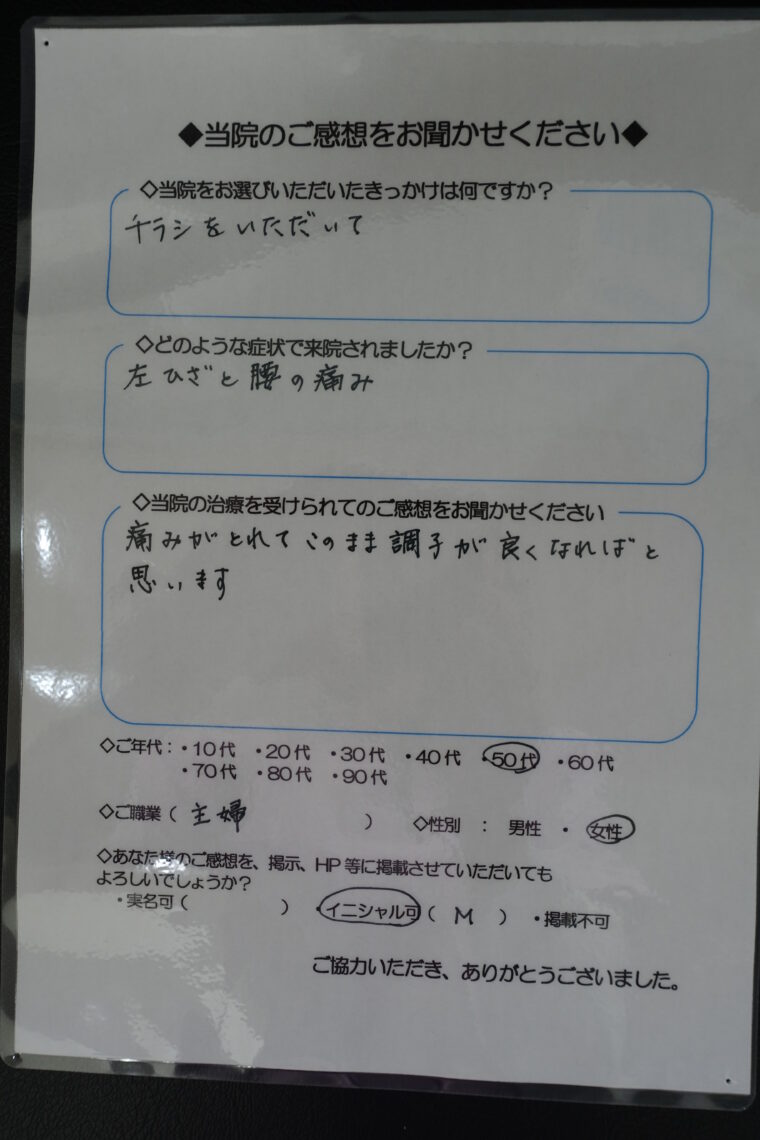 ◆当院のご感想をお聞かせください◆
◇当院をお選びいただいたきっかけは何ですか？
チラシをいただいて
◇どのような症状で来院されましたか？
左ひざと腰の痛み
◇当院の治療を受けられてのご感想をお聞かせください
痛みがとれてこのまま調子が良くなればと
思います
◇ご年代：・10代 ・20代 ・30代 ・40代 ・50代 ・60代
・70代 ・80代 ・90代
◇ご職業（ 主婦 ） ◇性別 ： 男性 ・ 女性
◇あなた様のご感想を、掲示、HP等に掲載させていただいても
よろしいでしょうか？
・実名可（ ） ・イニシャル可（ M ） ・掲載不可
ご協力いただき、ありがとうございました。